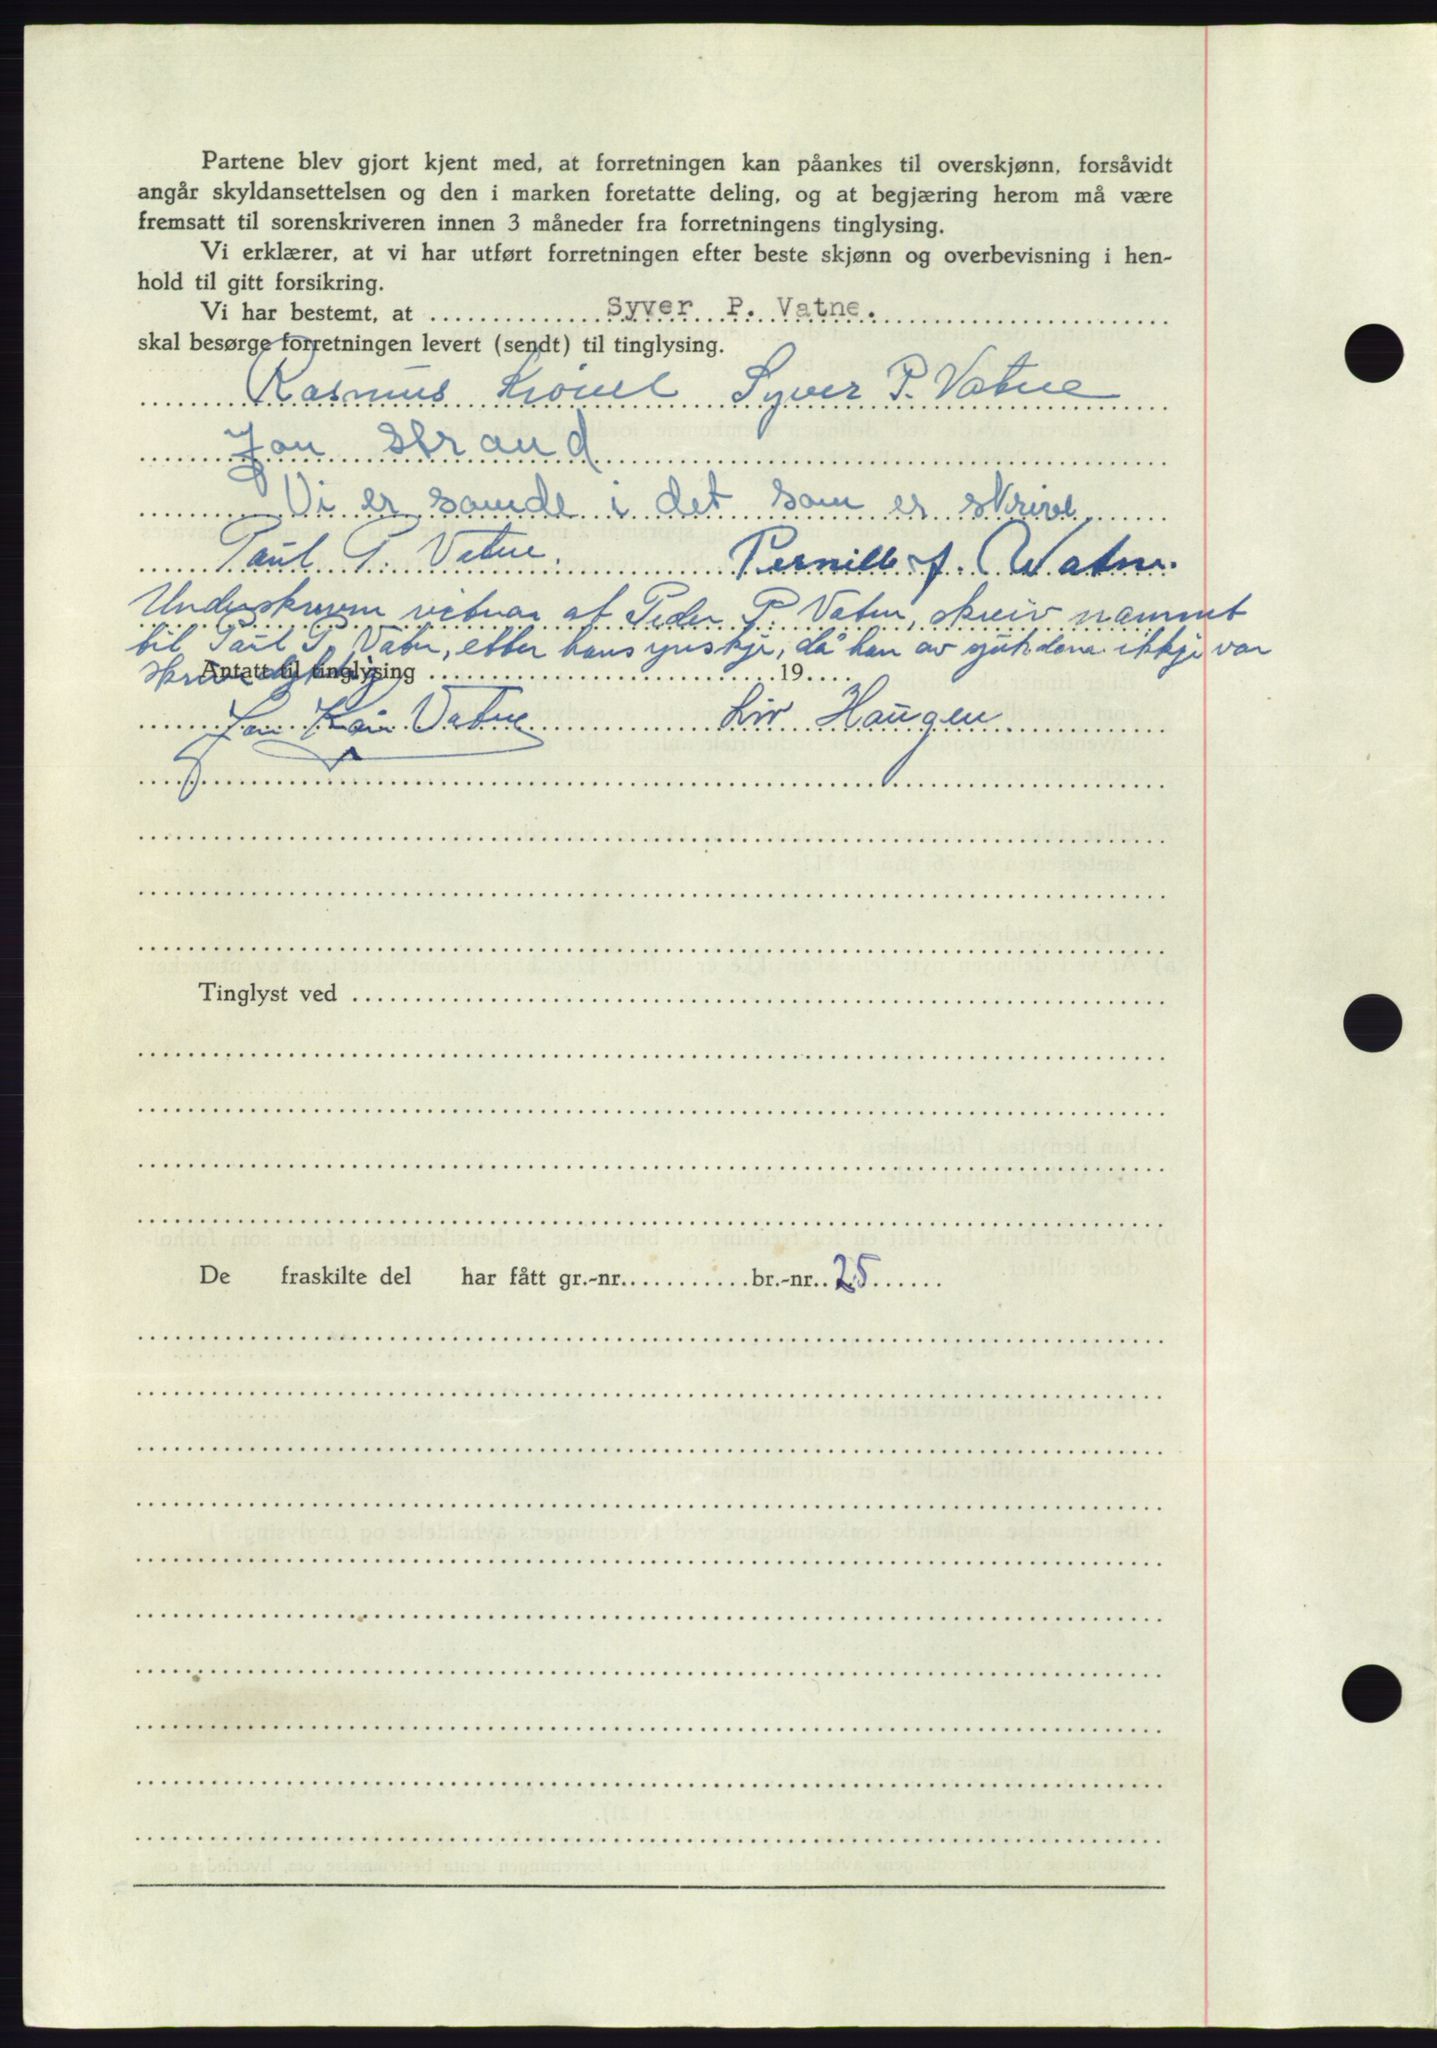 Partene blev gjort kjent med, at forretningen kan påankes til overskjønn, forsåvidt
angår skyldansettelsen og den i marken foretatte deling, og at begjæring herom må være
fremsatt til sorenskriveren innen 3 måneder fra forretningens tinglysing.
Vi erklærer, at vi har utført forretningen efter beste skjønn og overbevisning i hen-
hold til gitt forsikring.
Vi har bestemt, at Syver P. Vatne.
skal besørge forretningen levert (sendt) til tinglysing.
Rasmus Syver P. Vatne
Jon Strand
Vi er samde i det som er skrive
Paul P. Vatne. Pernille J. Watne.
Underskrevne vitnar at Peder P. Vatne, skreiv namnet
til Paul P. Vatne, etter hans ynskje, då han av sjukdom ikkje var
Antatt til tinglysing 19
Jon Vatne Liv Haugen.
Tinglyst ved
De fraskilte del har fått gr.-nr. br.-nr. 25